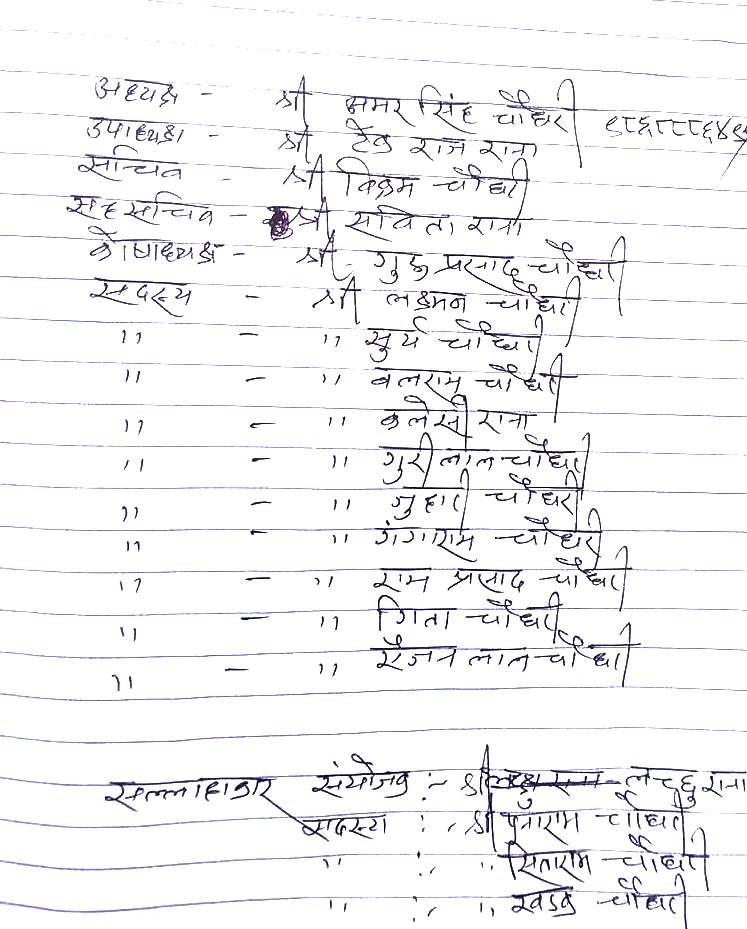 अध्यक्ष - श्री अमर सिंह चौधरी
उपाध्यक्ष - श्री टेक राज राना
सचिव - श्री विक्रम चौधरी
सह सचिव - श्री सविता राना
कोषाध्यक्ष - श्री गुरु प्रसाद चौधरी
सदस्य - श्री लक्ष्मन चौधरी
,, - ,, सुर्य चौधरी
,, - ,, बलराम चौधरी
,, - ,, राना
,, - ,, गुरी लाल चौधरी
,, - ,, जुहारी चौधरी
,, - ,, गंगाराम चौधरी
,, - ,, राम प्रसाद चौधरी
,, - ,, गिता चौधरी
,, - ,, लाल चौधरी
सल्लाहाकार संयोजक :- श्री लच्छु राना
सदस्य :- श्री चौधरी
,, :- ,, सिताराम चौधरी
,, :- ,, खडक चौधरी